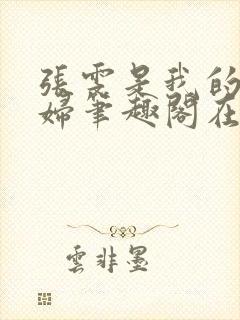 張雲是我的
婦筆趣閣在
雲非墨